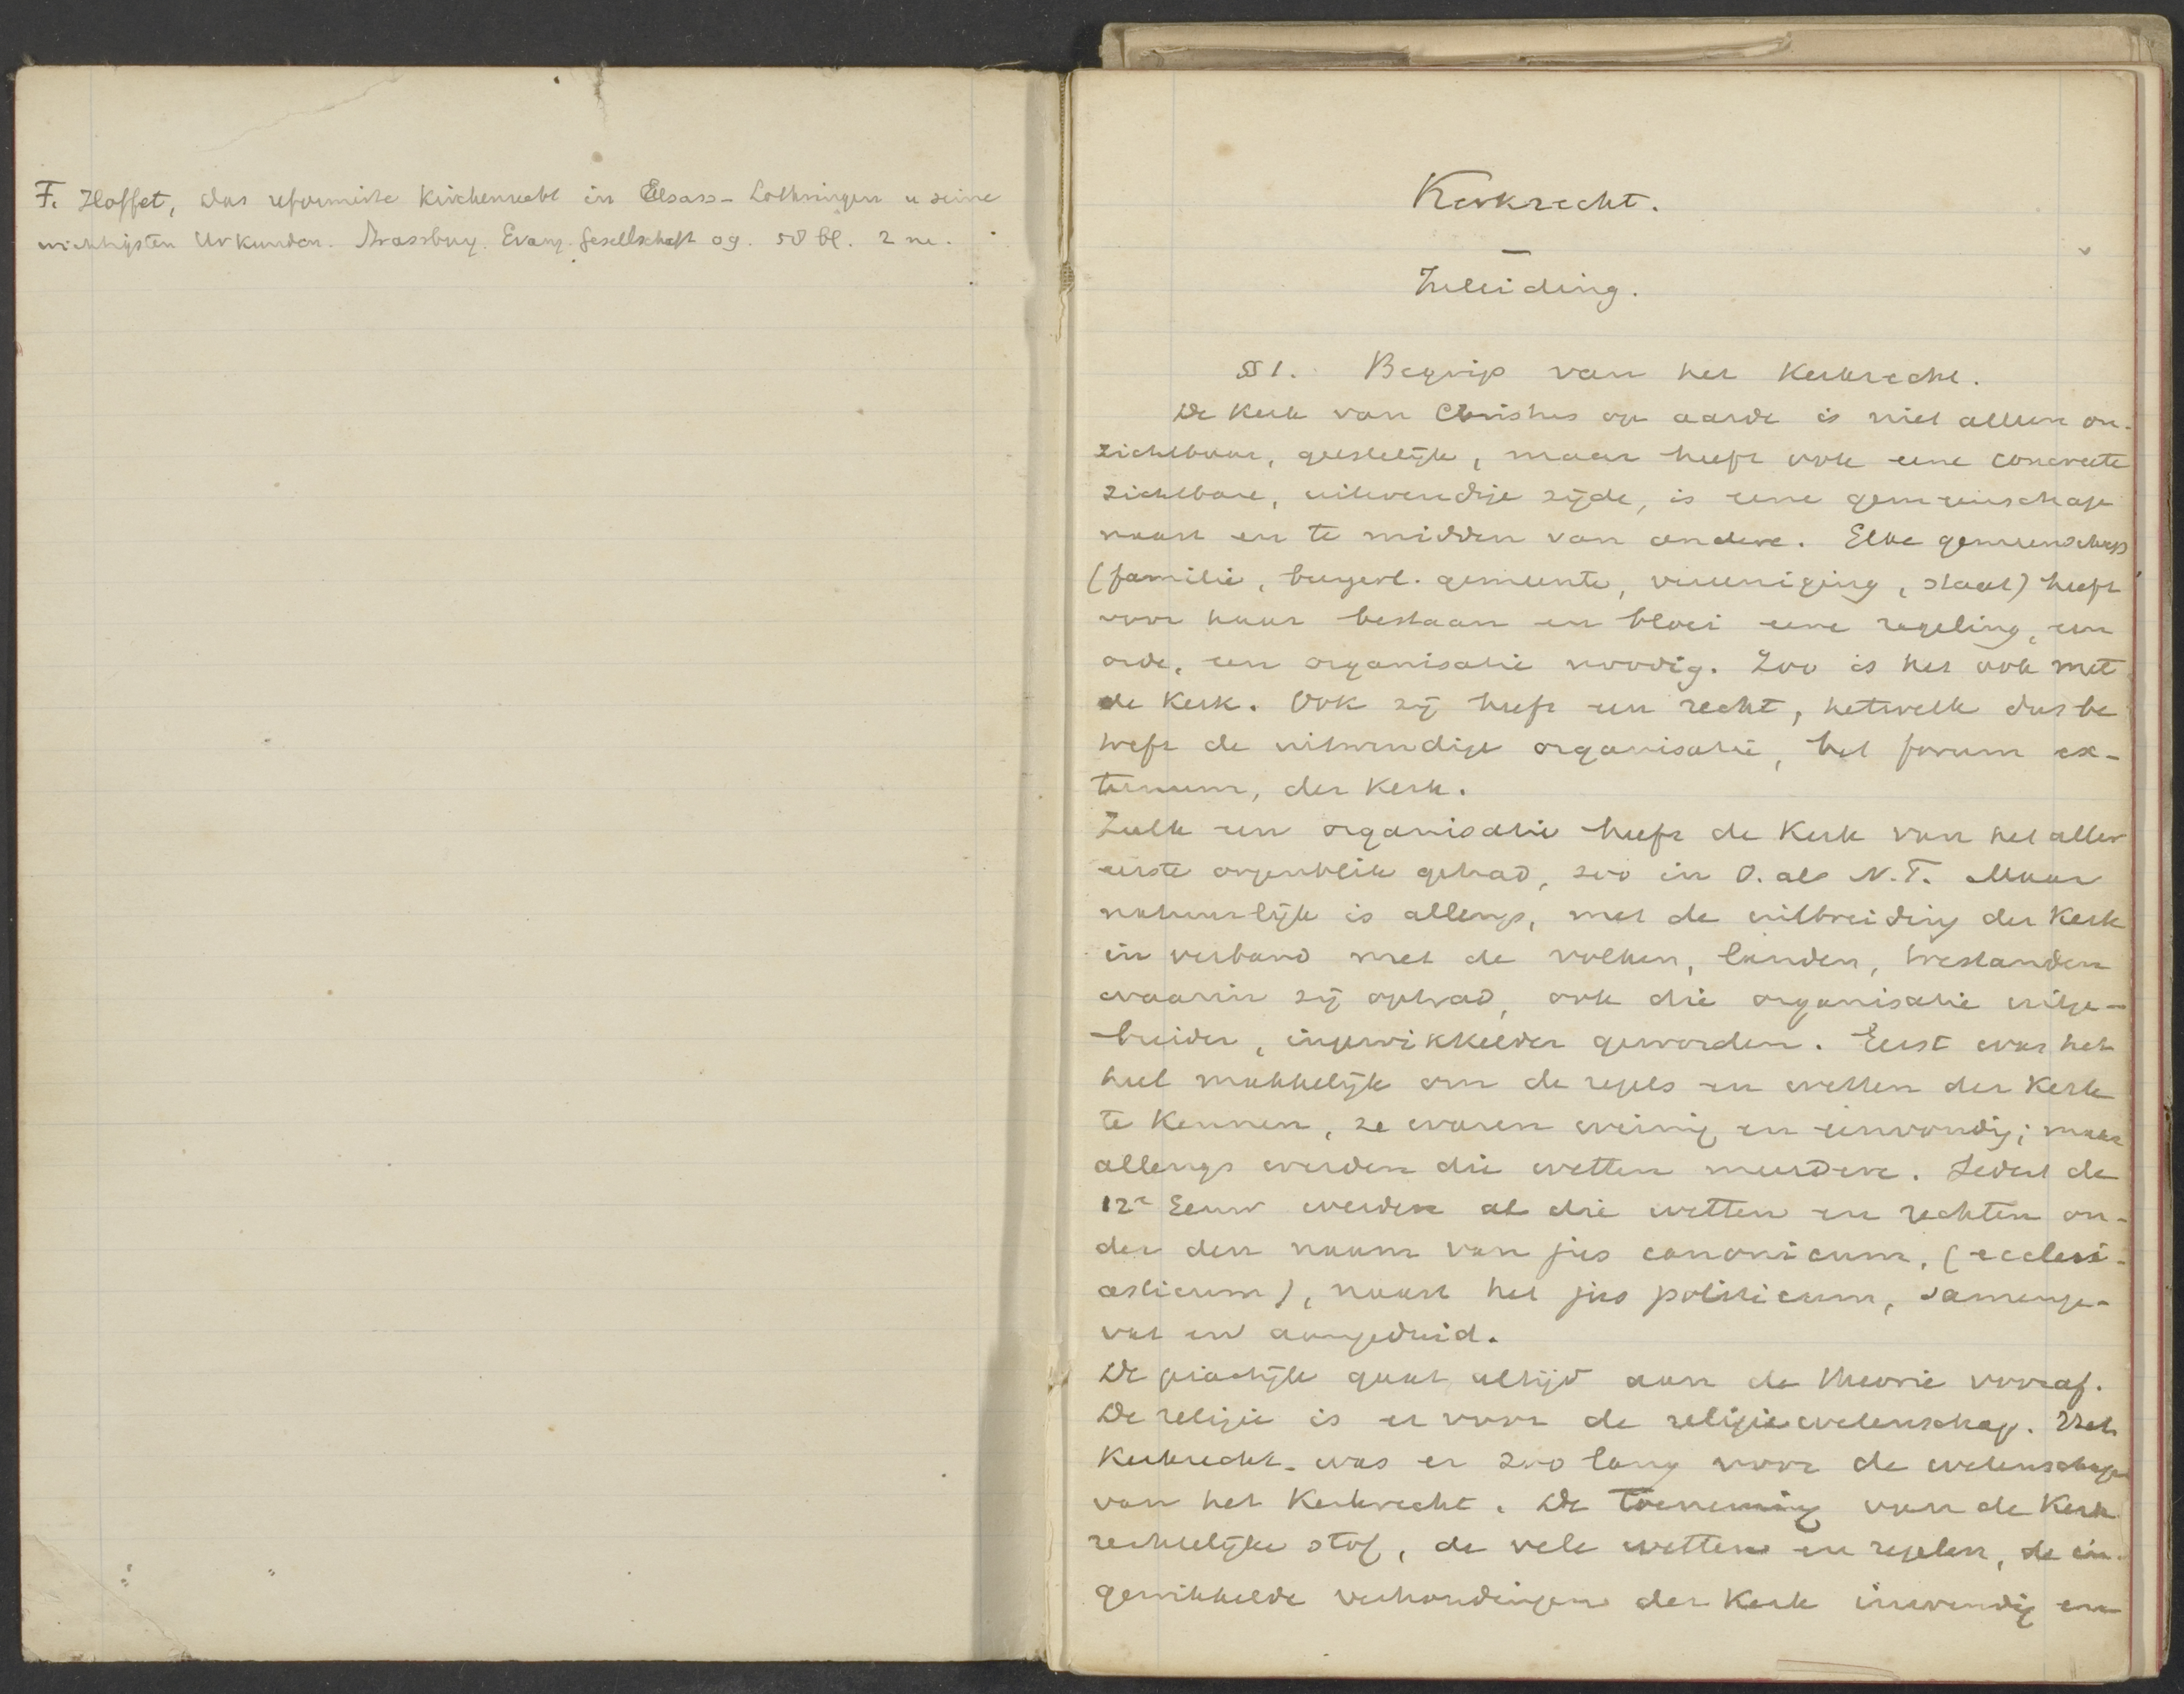 F. Hoffet, das reformirte Kirchenrecht in Elsass-Lothringen u seine
wichtigsten Urkunden. Strassburg. Evang. Gesellschaft 09. 58 bl. 2 m.
Kerkrecht.
Inleiding.
§ 1. Begrip van het Kerkrecht.
De Kerk van Christus op aarde is niet alleen on-
zichtbaar, geestelijk, maar heeft ook eene concreete
zichtbare, uitwendige zijde, is eene gemeenschap
naast en te midden van andere. Elke gemeenschap
(familie, burgerl. gemeente, vereeniging, staat) heeft
voor haar bestaan en bloei eene regeling, een
orde, een organisatie noodig. Zoo is het ook met
de Kerk. Ook zij heeft een recht, hetwelk dus be
treft de uitwendige organisatie, het forum ex-
ternum, der Kerk.
Zulk een organisatie heeft de Kerk van het aller
eerste oogenblik gehad, zoo in O. als N.T. Maar
natuurlijk is allengs, met de uitbreiding der Kerk
in verband met de volken, landen, toestanden
waarin zij optrad, ook die organisatie uitge-
breider, ingewikkelder geworden. Eerst was het
heel makkelijk om de regels en wetten der Kerk
te Kennen, ze waren weinig en eenvoudig; maar
allengs werden die wetten meerdere. Sedert de
12e Eeuw werden al die wetten en rechten on-
der den naam van jus canonicum, (ecclesi-
asticum), naast het jus politicum, samenge-
vat en aangeduid.
De practijk gaat altijd aan de theorie vooraf.
De religie is er voor de religiewetenschap. Het
Kerkrecht was er zoo lang voor de wetenschap
van het Kerkrecht. De toeneming van de Kerk
rechtelijke stof, de vele wetten en regelen, de in-
gewikkelde verhoudingen der Kerk inwendig en